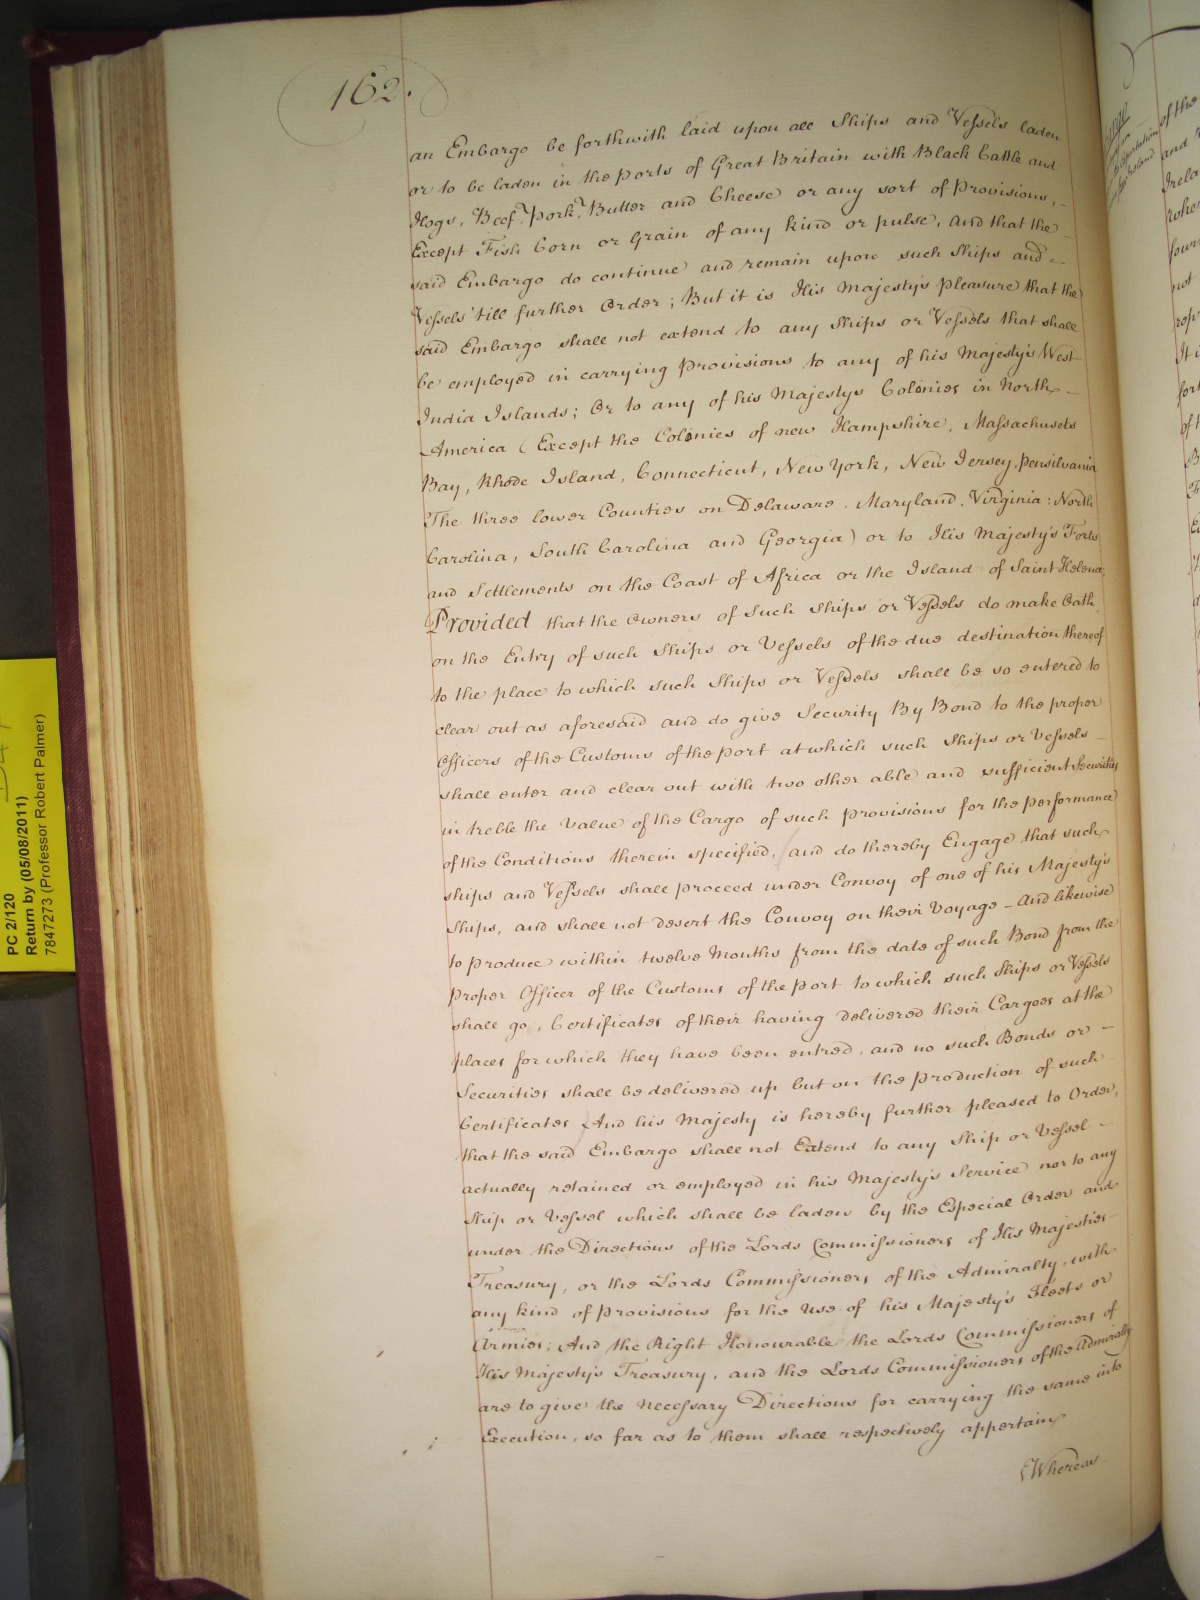 162.
an Embargo be forthwith laid upon all Ships and Vessels laden
or to be laden in the Ports of Great Britain with Black Cattle and
Hogs, Beef, Pork, Butter and Cheese or any sort of Provisions, -
Except Fish Corn or Grain of any kind or pulse, And that the -
said Embargo do continue and remain upon such Ships and -
Vessels till further Order; But it is His Majesty's pleasure that the
said Embargo shall not extend to any Ships or Vessels that shall
be employed in carrying Provisions to any of his Majesty's West
India Islands; Or to any of his Majestys Colonies in North -
America (Except the Colonies of new Hampshire, Massachusets
Bay, Rhode Island, Connecticut, New York, New Jersey, Pensilvania
The three lower Counties on Delaware, Maryland, Virginia: North
Carolina, South Carolina and Georgia) or to His Majesty's Forts
and Settlements on the Coast of Africa or the Island of Saint Helena;
Provided that the Owners of such Ships or Vessels do make Oath
on the Entry of such Ships or Vessels of the due destination thereof
to the place to which such Ships or Vessels shall be so entered to
clear out as aforesaid and do give Security By Bond to the proper
Officers of the Customs of the Port at which such Ships or Vessels -
shall enter and clear out with two other able and sufficient Securities
in treble the Value of the Cargo of such provisions for the performance
of the Conditions therein specified, and do thereby Engage that such
ships and Vessels shall proceed under Convoy of one of his Majesty's
Ships, and shall not desert the Convoy on their Voyage - And likewise
to produce within twelve Months from the date of such Bond from the
proper Officer of the Customs of the Port to which such Ships or Vessels
shall go, Certificates of their having delivered their Cargoes at the
places for which they have been entred, and no such Bonds or -
Securities shall be delivered up but on the production of such
Certificates And his Majesty is hereby further pleased to Order,
that the said Embargo shall not Extend to any Ship or Vessel -
actually retained or employed in his Majesty's Service nor to any
Ship or Vessel which shall be laden by the Especial Order and
under the Directions of the Lords Commissioners of His Majesties
Treasury, or the Lords Commissioners of the Admiralty, with
any kind of provisions for the Use of his Majesty's Fleets or
Armies; And the Right Honourable the Lords Commissioners of
His Majesty's Treasury, and the Lords Commissioners of the Admiralty
are to give the necessary Directions for carrying the same into
Execution, so far as to them shall respectively appertain
Whereas
PC 2/120
Return by (05/08/2011)
7847273 (Professor Robert Palmer)
of the
and
Irela
not